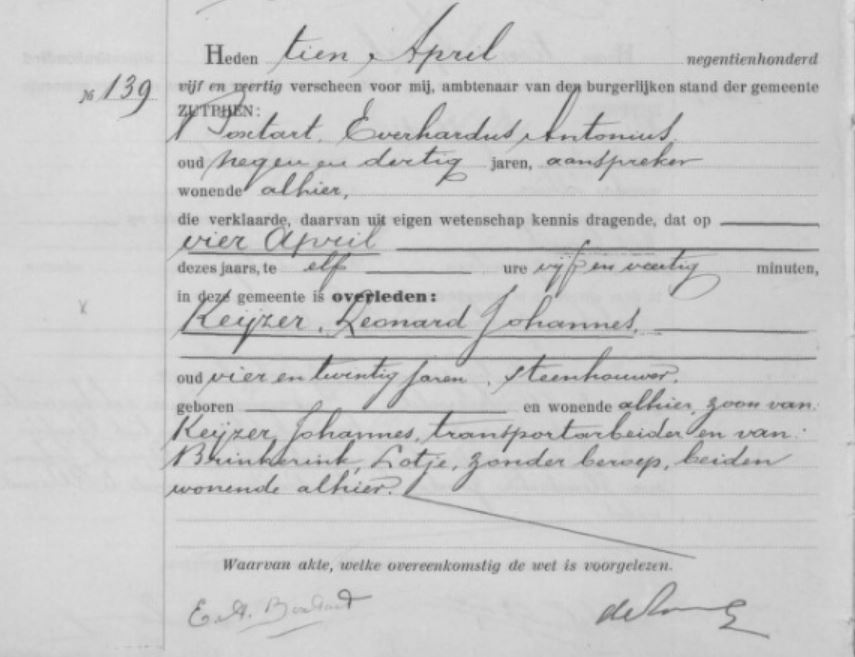 Heden tien April negentienhonderd
№ 139 vijf en veertig verscheen voor mij, ambtenaar van den burgerlijken stand der gemeente
ZUTPHEN:
Everhardus Antonius.
oud negen en dertig jaren, aanspreker
wonende alhier,
die verklaarde, daarvan uit eigen wetenschap kennis dragende, dat op
vier April
dezes jaars, te elf ure vijf en veertig minuten,
in deze gemeente is overleden:
Keijzer, Leonard Johannes,
oud vier en twintig jaren, steenhouwer,
geboren en wonende alhier, zoon van:
Keijzer, Johannes, transportarbeider en van:
Brinkerink, Lotje, zonder beroep, beiden
wonende alhier.
Waarvan akte, welke overeenkomstig de wet is voorgelezen.
E. A.